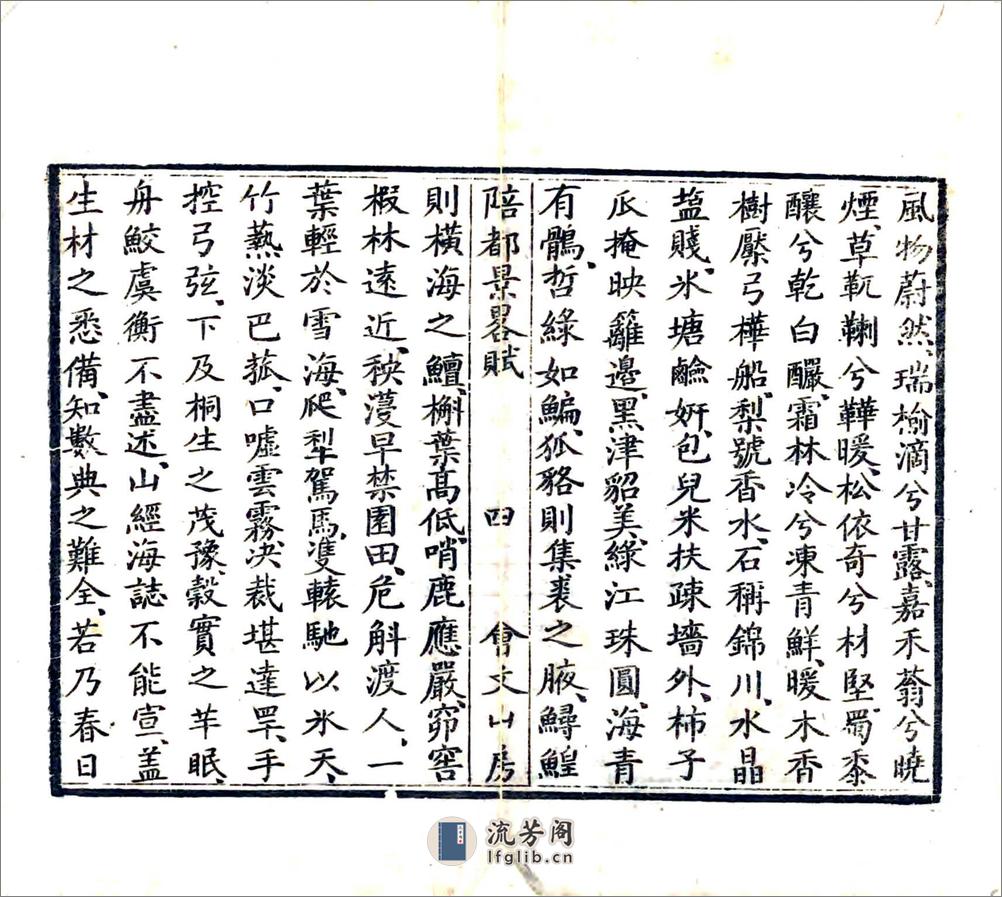 風物蔚然、瑞榆滴兮甘露、嘉禾蓊兮曉
煙、草靰鞡兮鞾暖、松依奇兮材堅、蜀黍
釀兮乾白釃、霜林冷兮凍青鮮、暖木香
樹壓弓樺船、梨號香水、石稱錦川、水晶
塩賤、氷塘鹼妍、包兒米扶疎墻外、柿子
瓜掩映籬邊、黑津貂美、綠江珠圓、海青
有鶻、哲綠如鯿、狐貉則集裘之腋、鱘鰉
陪都景畧賦 四 會文山房
則橫海之鱣、槲葉高低、哨鹿應嚴、窌窖
椵林遠近、秧蔆早禁園田、危斛渡人、一
葉輕於雪海、爬犁駕馬、雙轅馳以氷天、
竹爇淡巴菰、口噓雲霧、决裁堪達罕、手
控弓弦、下及桐生之茂豫、穀實之芊眠、
舟鮫虞衡不盡述、山經海誌不能宣、盖
生材之悉備、知數典之難全、若乃春日
流芳阁
lfglib.cn